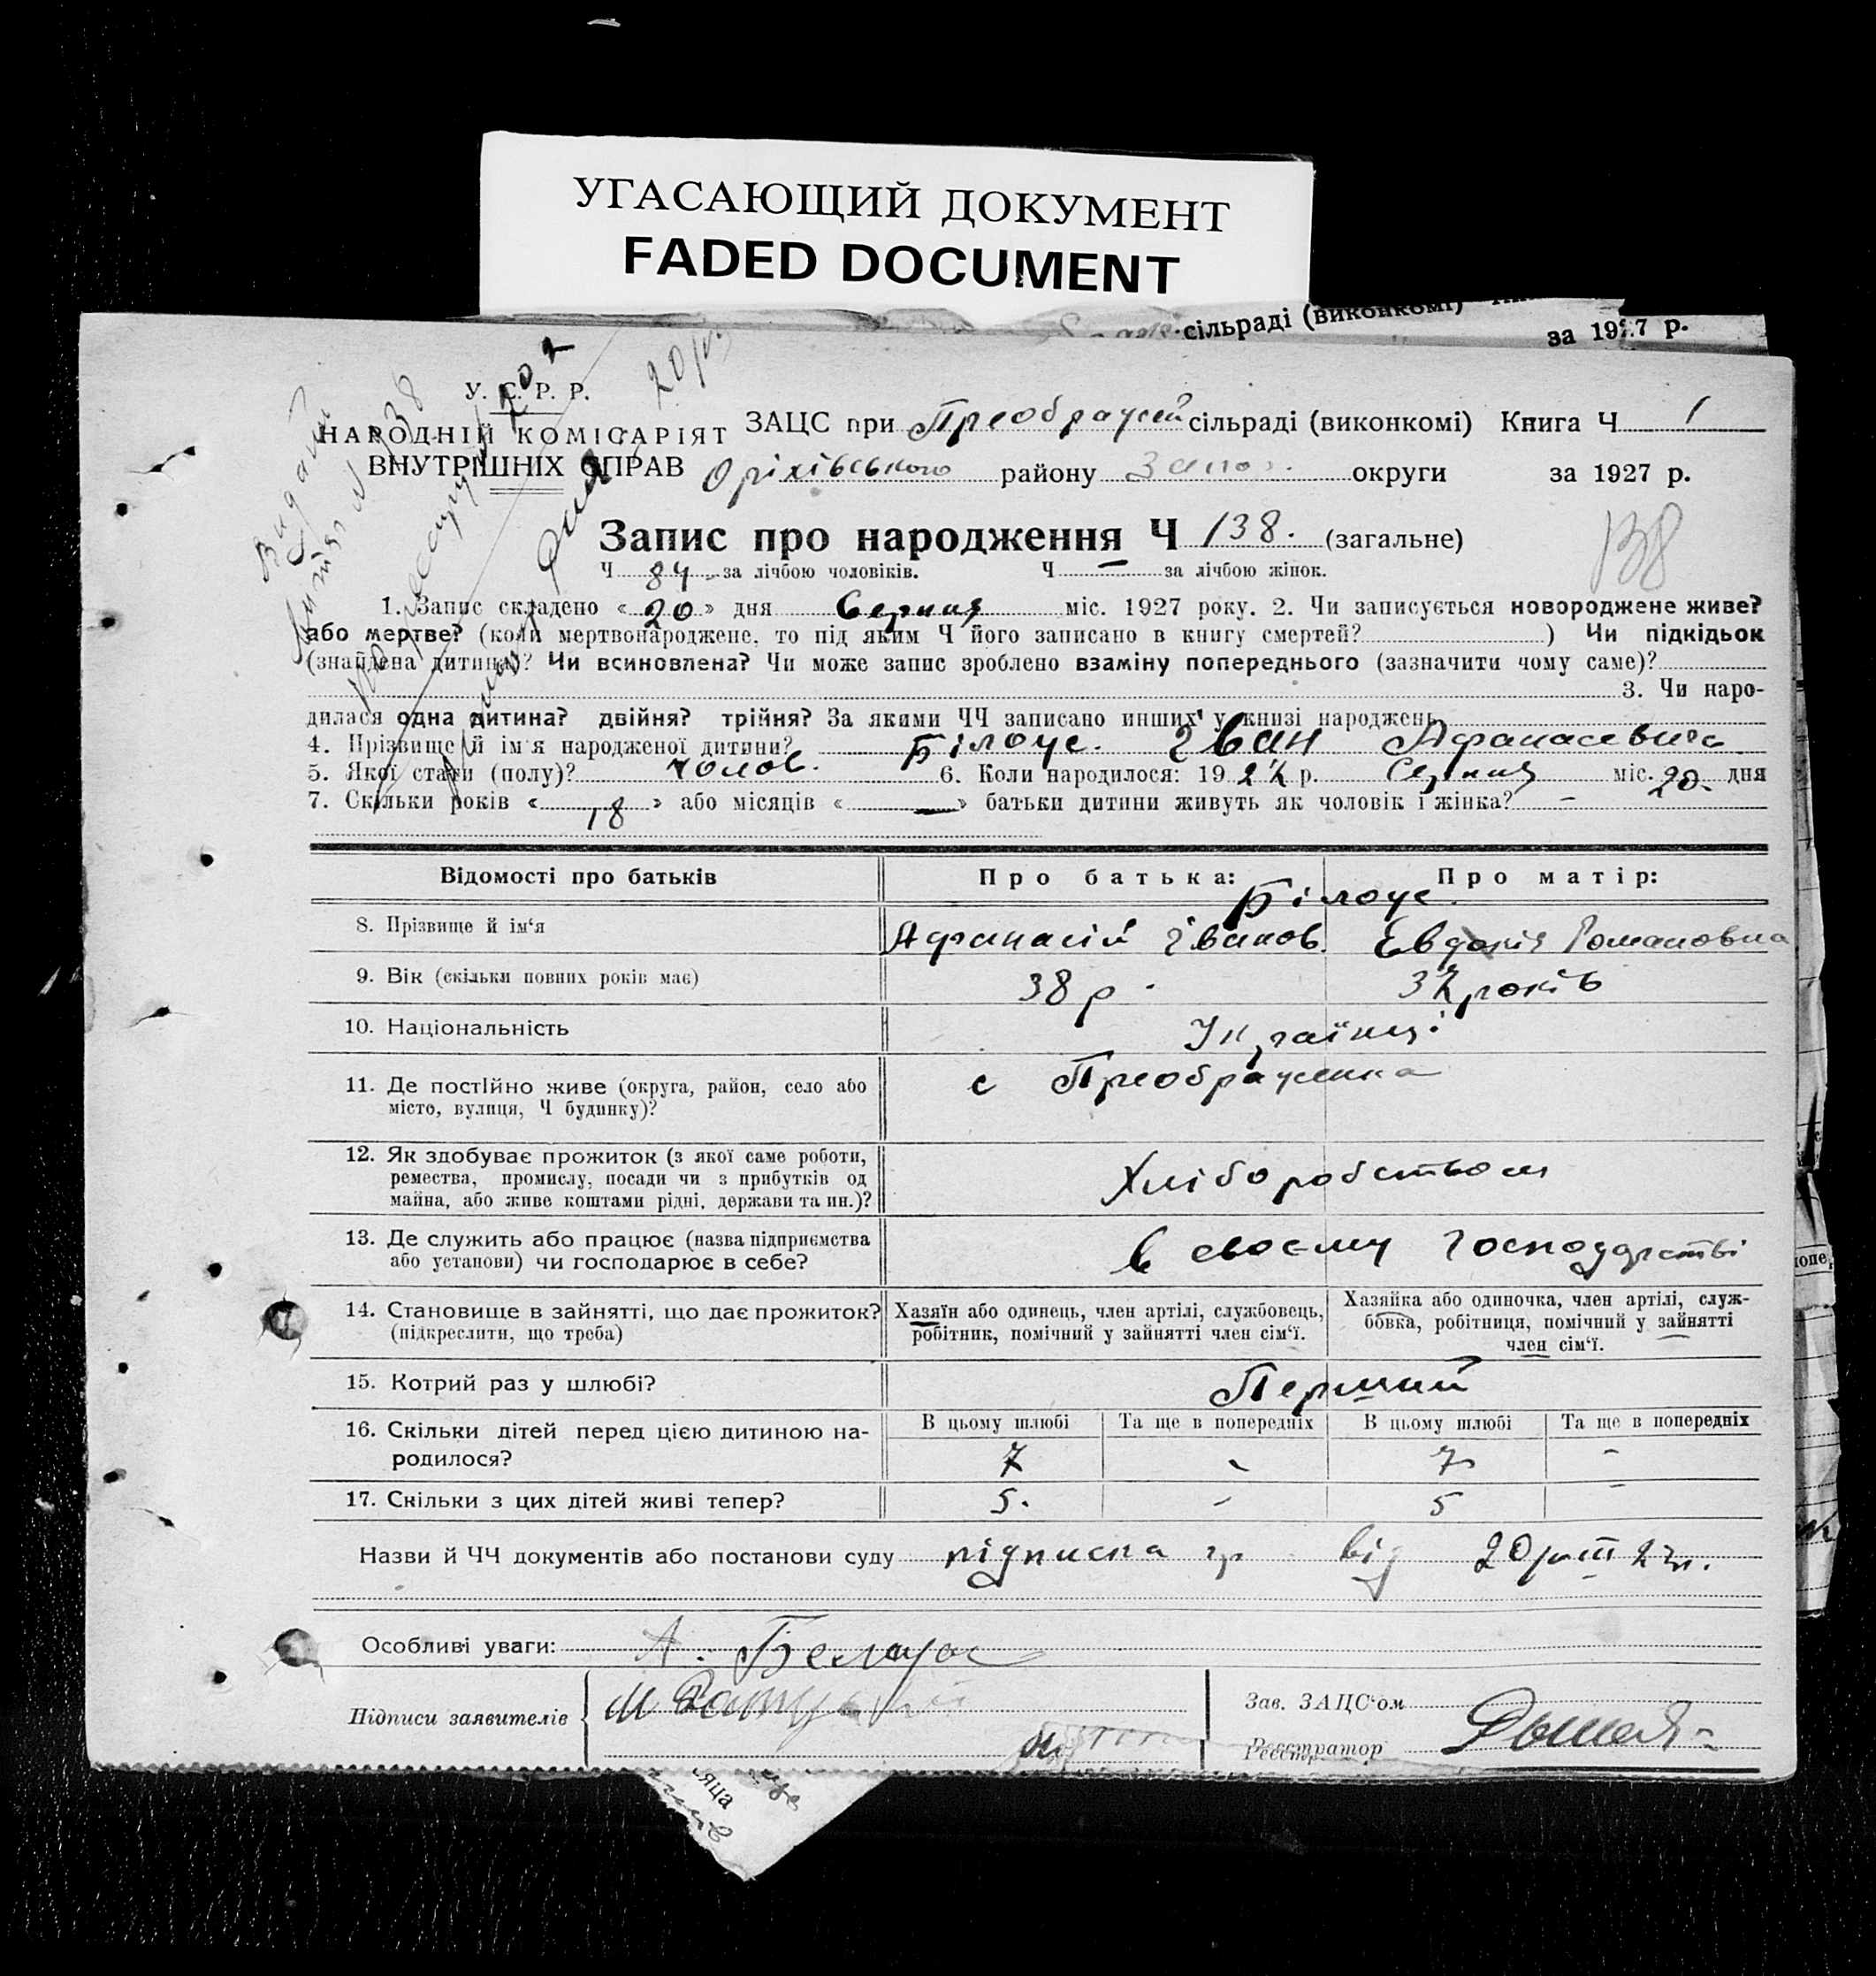 УГАСАЮЩИЙ ДОКУМЕНТ
FADED DOCUMENT
сільраді (виконкомі)
за 1927 р.
У. С. Р. Р.
НАРОДНІЙ КОМІСАРІЯТ
ВНУТРІШНІХ СПРАВ
ЗАЦС при Преображен сільраді (виконкомі) Книга Ч 1
Оріхівського району Запор. округи за 1927 р.
Запис про народження Ч 138. (загальне)
138
Ч 84 за лічбою чоловіків. Ч — за лічбою жінок.
1. Запис складено « 20 » дня Серпня міс. 1927 року. 2. Чи записується новороджене живе?
або мертве? (коли мертвонароджене, то під яким Ч його записано в книгу смертей? ) Чи підкідьок
(знайдена дитина)? Чи всиновлена? Чи може запис зроблено взаміну попереднього (зазначити чому саме)?
3. Чи наро-
дилася одна дитина? двійня? трійня? За якими ЧЧ записано инших у книзі народжень
4. Прізвище й ім'я народженої дитини? Білоус. Іван Афанасевич
5. Якої стати (полу)? чолов. 6. Коли народилося: 1927 р. Серпня міс. 20. дня
7. Скільки років « 18 » або місяців « — » батьки дитини живуть як чоловік і жінка? –
Відомості про батьків Про батька: Про матір:
Білоус.
8. Прізвище й ім'я Афанасій Іванов. Евдокія Романовна
9. Вік (скільки повних років має) 38 р. 37 років
10. Національність Українці
11. Де постІйно живе (округа, район, село або
місто, вулиця, Ч будинку)?
с Преображенка
12. Як здобуває прожиток (з якої саме роботи,
ремества, промислу, посади чи з прибутків од
майна, або живе коштами рідні, держави та ин.)?
Хліборобством
13. Де служить або працює (назва підприємства
або установи) чи господарює в себе?
в своєму господарстві
14. Становище в зайнятті, що дає прожиток?
(підкреслити, що треба)
Хазяїн або одинець, член артілі, службовець,
робітник, помічний у зайнятті член сім'ї.
Хазяйка або одиночка, член артілі, служ-
бовка, робітниця, помічний у зайнятті
член сім'ї.
15. Котрий раз у шлюбі? Перший
16. Скільки дітей перед цією дитиною на-
родилося?
В цьому шлюбі Та ще в попередніх В цьому шлюбі Та ще в попередніх
7 - 7 -
17. Скільки з цих дітей живі тепер? 5. - 5 -
Назви й ЧЧ документів або постанови суду підписка від 20/VIII 27 р.
Особливі уваги: А. Белоус
Підписи заявителів
Зав. ЗАЦС'ом
Реєстратор